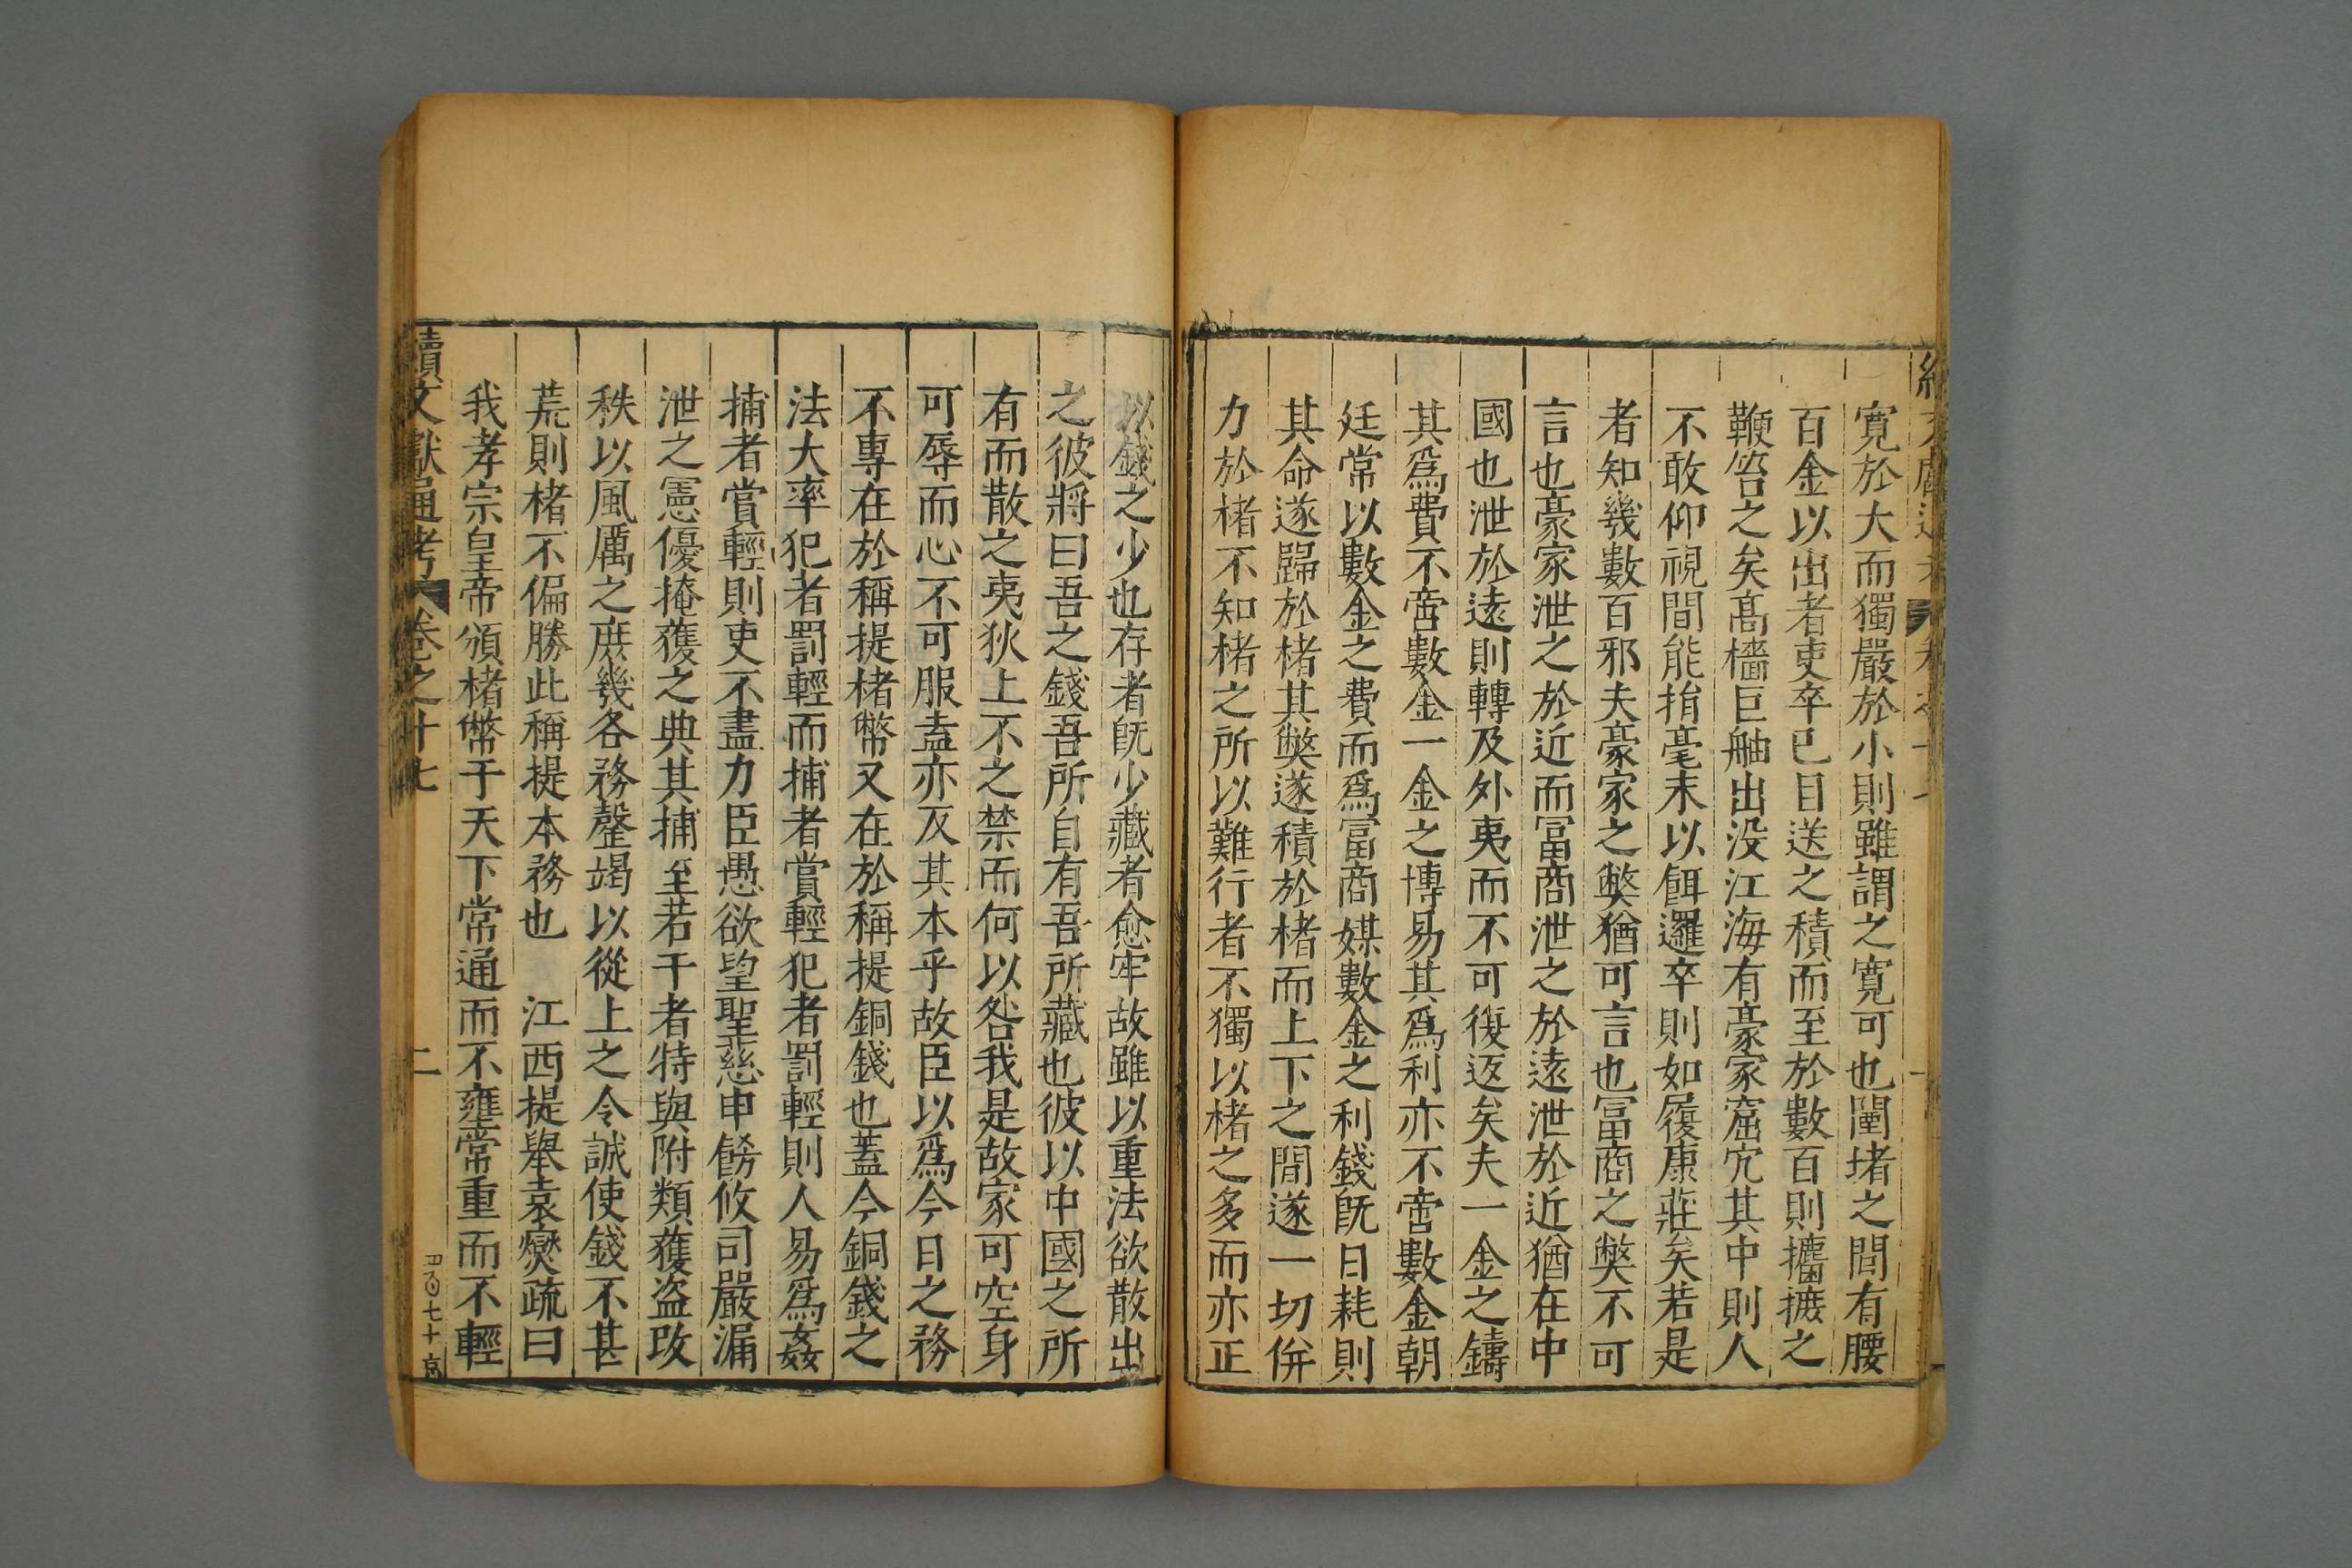 寬於大而獨嚴於小則雖謂之寬可也闉堵之間有腰
百金以出者吏卒已目送之積而至於數百則攟摭之
鞭笞之矣髙檣巨舳出没江海有豪家窟宂其中則人
不敢仰視間能捐毫末以餌邏卒則如履康莊矣若是
者知幾數百邪夫豪家之獘猶可言也冨商之獘不可
言也豪家泄之於近而冨商泄之於遠泄於近猶在中
國也泄於遠則轉及外夷而不可復返矣夫一金之鑄
其爲費不啻數金一金之博易其爲利亦不啻數金朝
廷常以數金之費而爲冨商媒數金之利錢既日耗則
其命遂歸於楮其獘遂積於楮而上下之間遂一切併
力於楮不知楮之所以難行者不獨以楮之多而亦正
以錢之少也存者旣少藏者愈牢故雖以重法欲散出
之彼將曰吾之錢吾所自有吾所藏也彼以中國之所
有而散之夷狄上不之禁而何以咎我是故家可空身
可辱而心不可服盍亦反其本乎故臣以爲今日之務
不專在於稱提楮幣又在於稱提銅錢也蓋今銅錢之
法大率犯者罰輕而捕者賞輕犯者罰輕則人易爲姦
捕者賞輕則吏不盡力臣愚欲望聖慈申餝攸司嚴漏
泄之憲優掩獲之典其捕至若干者特與附類獲盗改
秩以風厲之庶幾各務罄竭以從上之令誠使錢不甚
荒則楮不偏勝此稱提本務也　江西提舉袁爕疏曰
我孝宗皇帝頒楮幣于天下常通而不壅常重而不輕
續文獻通考　卷之十七　二